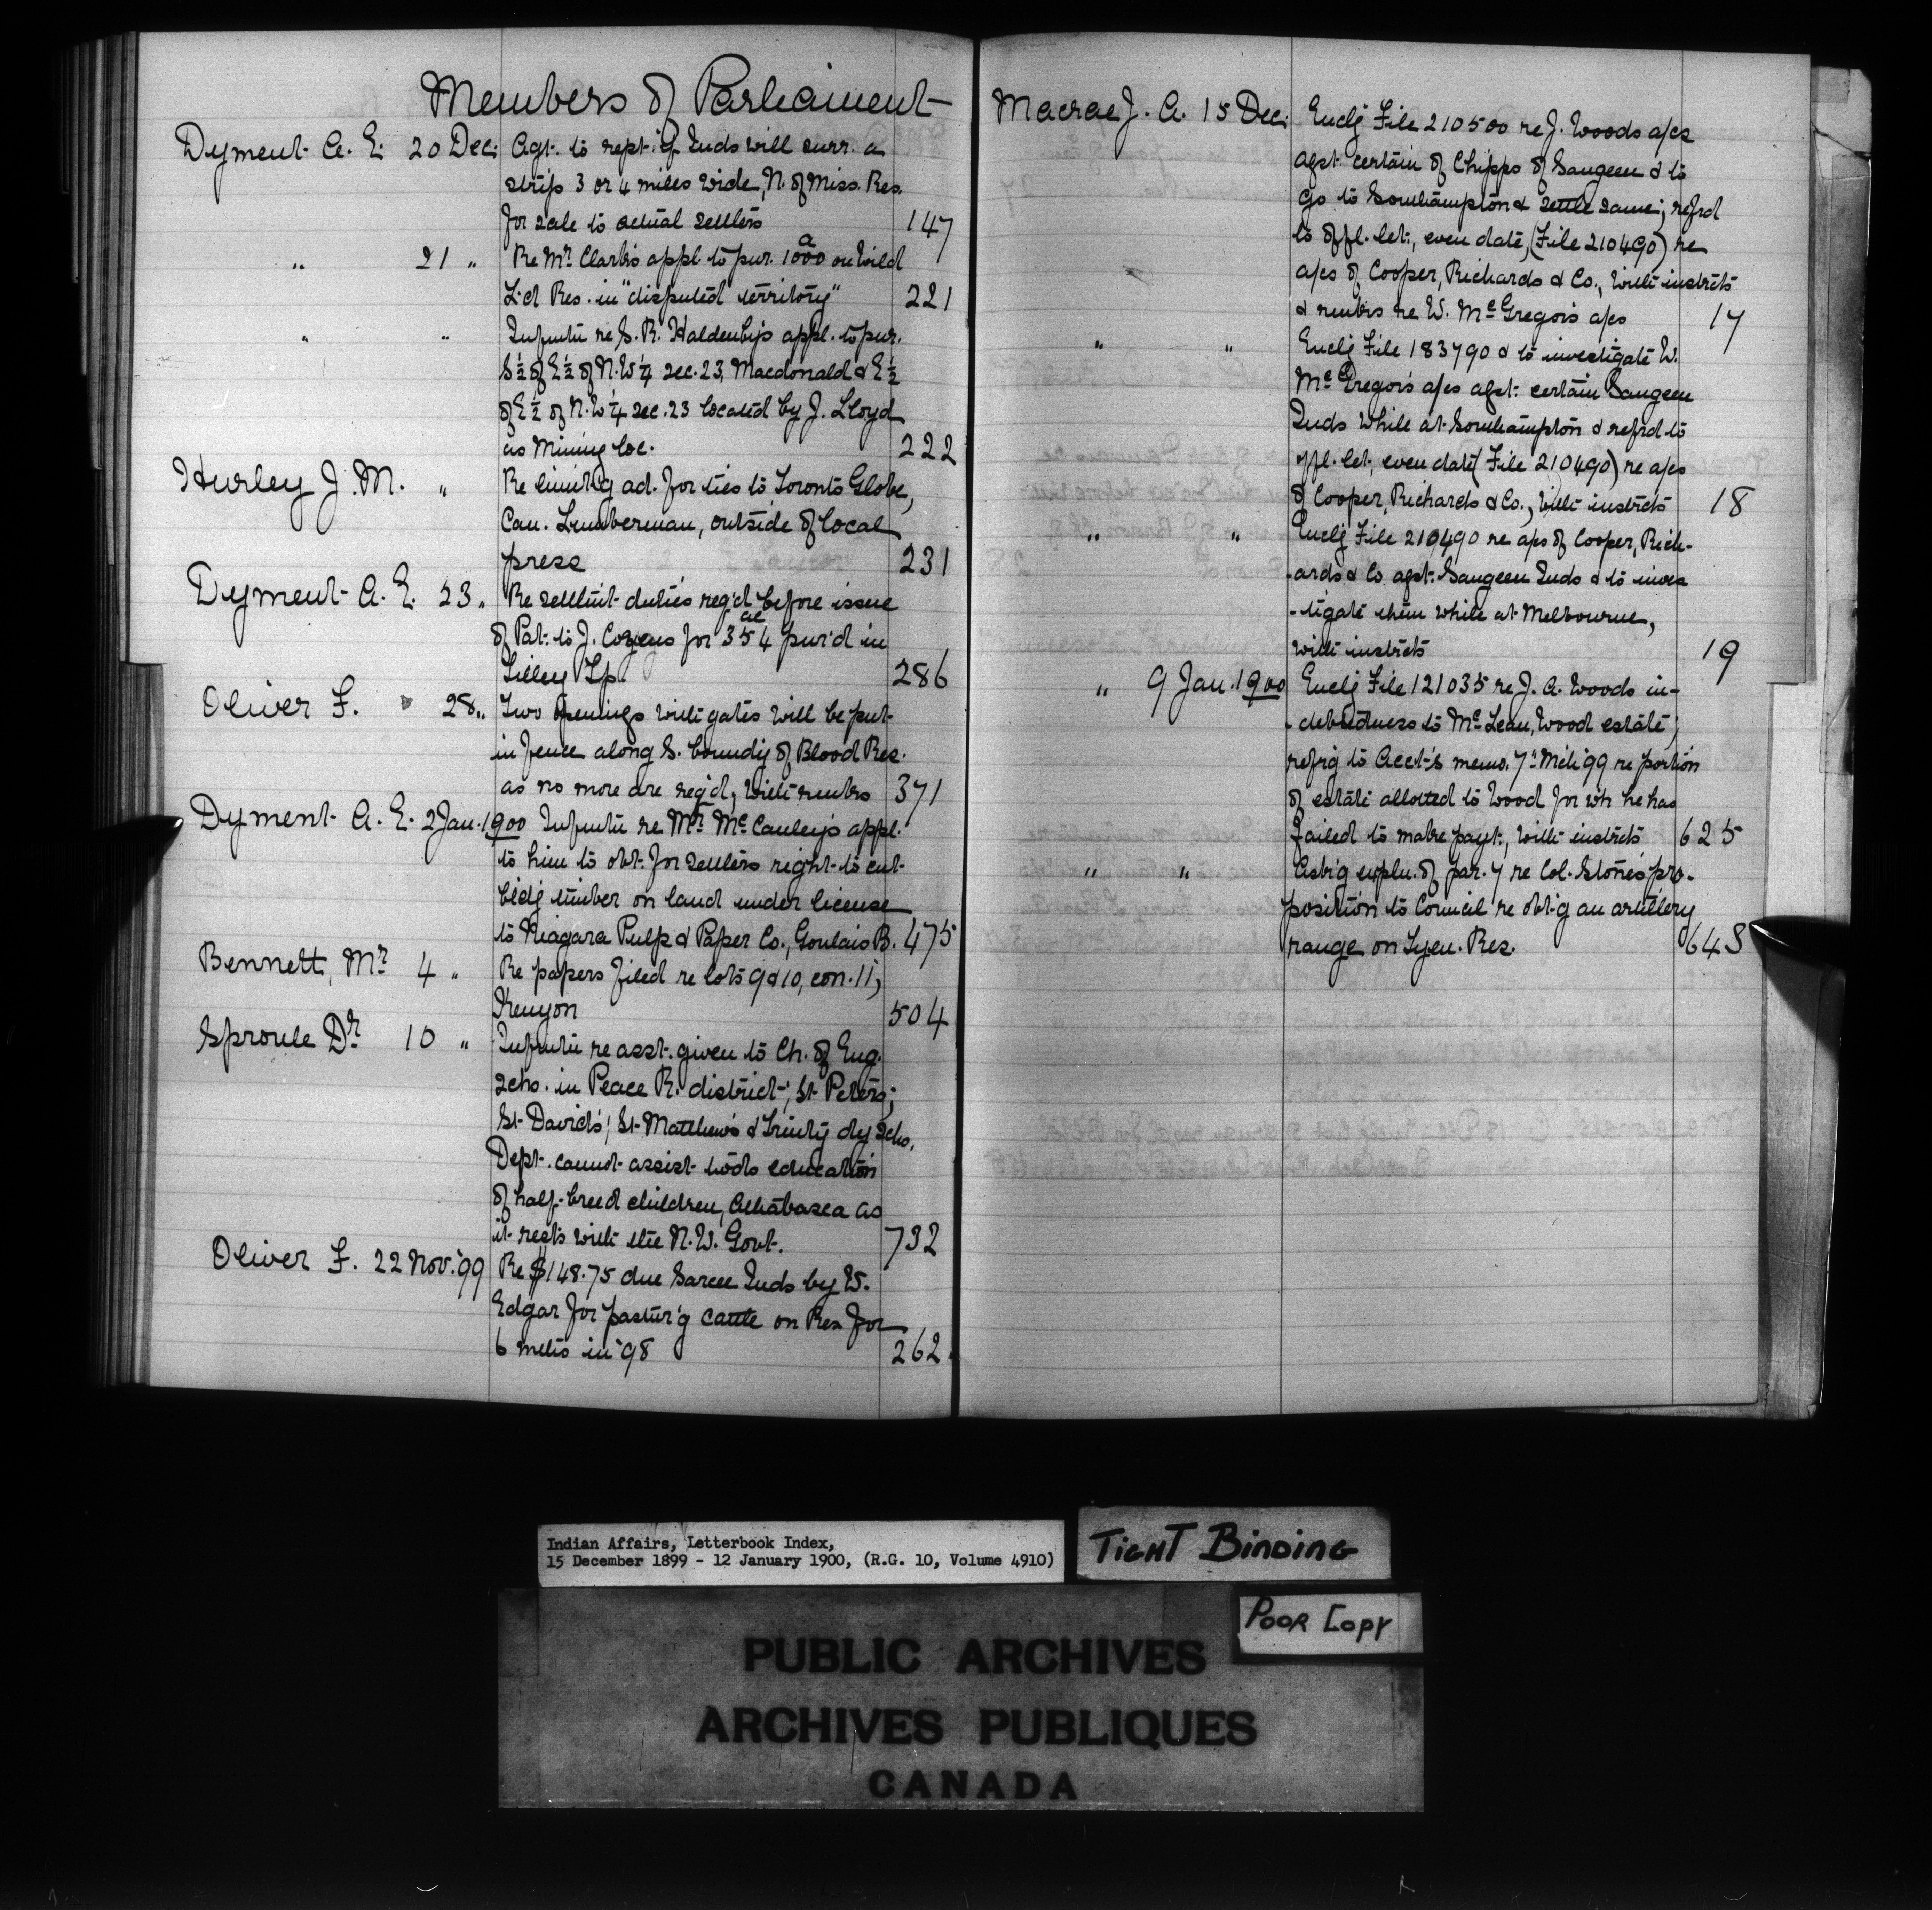 Members of Parliament
Dyment A. E. 20 Dec. Agt. to rept. if Inds will surr. a
strip 3 or 4 miles wide, N. of Miss. Res.
for sale to actual settlers 147
" 21 " Re Mr. Clark's appl. to pur. 1000 a on Wild
L'd Res. in "disputed territory" 221
" " Infmtn re S. R. Haldenby's appl. to pur.
S½ of E½ of N.W¼ sec. 23, Macdonald & E½
of E½ of N.W¼ sec. 23 located by J. Lloyd
as Mining loc. 222
Hurley J. M. " Re limit'g ad. for ties to Toronto Globe,
Can. Lumberman, outside of local
press 231
Dyment A. E. 23 " Re settlmt duties req'd before issue
of Pat. to J. Cozens for 354 ac pur'd in
Tilley Tp. 286
Oliver F. 28 " Two openings with gates will be put
in fence along S. boundy of Blood Res.
as no more are req'd, with rmrks 371
Dyment A. E. 2 Jan. 1900 Infmtn re Mr. McCauley's appl.
to him to obt. for settlers right to cut
bld'g timber on land under license
to Niagara Pulp & Paper Co., Goulais B. 475
Bennett, Mr. 4 " Re papers filed re lots 9 & 10, con. 11,
Kenyon 504
Sproule Dr. 10 " Infmtn re asst. given to Ch. of Eng.
schs. in Peace R. district, St Peters;
St David's; St Matthew's & Trinity dy schs.
Dept. cannot assist t'w'ds education
of half-breed children, Athabasca as
it rests with the N.W. Govt. 732
Oliver F. 22 Nov. '99 Re $148.75 due Sarcee Inds by W.
Edgar for pastur'g cattle on Res for
6 mths in '98 262
Macrae J. A. 15 Dec. Encl'g File 210500 re J. Woods a/cs
agst. certain of Chipps of Saugeen & to
go to Southampton & settle same; refrd
to offl. let., even date, (File 210490) re
a/cs of Cooper, Richards & Co., with instrcts
& rmrks re W. McGregor's a/cs 17
" " Encl'g File 183790 & to investigate W.
McGregor's a/cs agst. certain Saugeen
Inds while at Southampton & refrd to
offl. let., even date (File 210490) re a/cs
of Cooper, Richards & Co., with instrcts 18
" " Encl'g File 210490 re a/cs of Cooper, Rich-
-ards & Co. agst. Saugeen Inds & to inves
-tigate them while at Melbourne,
with instrcts 19
" 9 Jan. 1900 Encl'g File 121035 re J. A. Woods in-
-debtedness to McLean, Wood estate;
refrg to Acct's memo. 7th Mch '99 re portion
of estate allotted to Wood for wh he has
failed to make payt., with instrcts 625
" " Ask'g expln. of par. 7 re Col. Stone's pro-
position to Council re obt'g an artillery
range on Tyen. Res. 648
Indian Affairs, Letterbook Index,
15 December 1899 - 12 January 1900, (R.G. 10, Volume 4910)
TIGHT BINDING
POOR COPY
PUBLIC ARCHIVES
ARCHIVES PUBLIQUES
CANADA